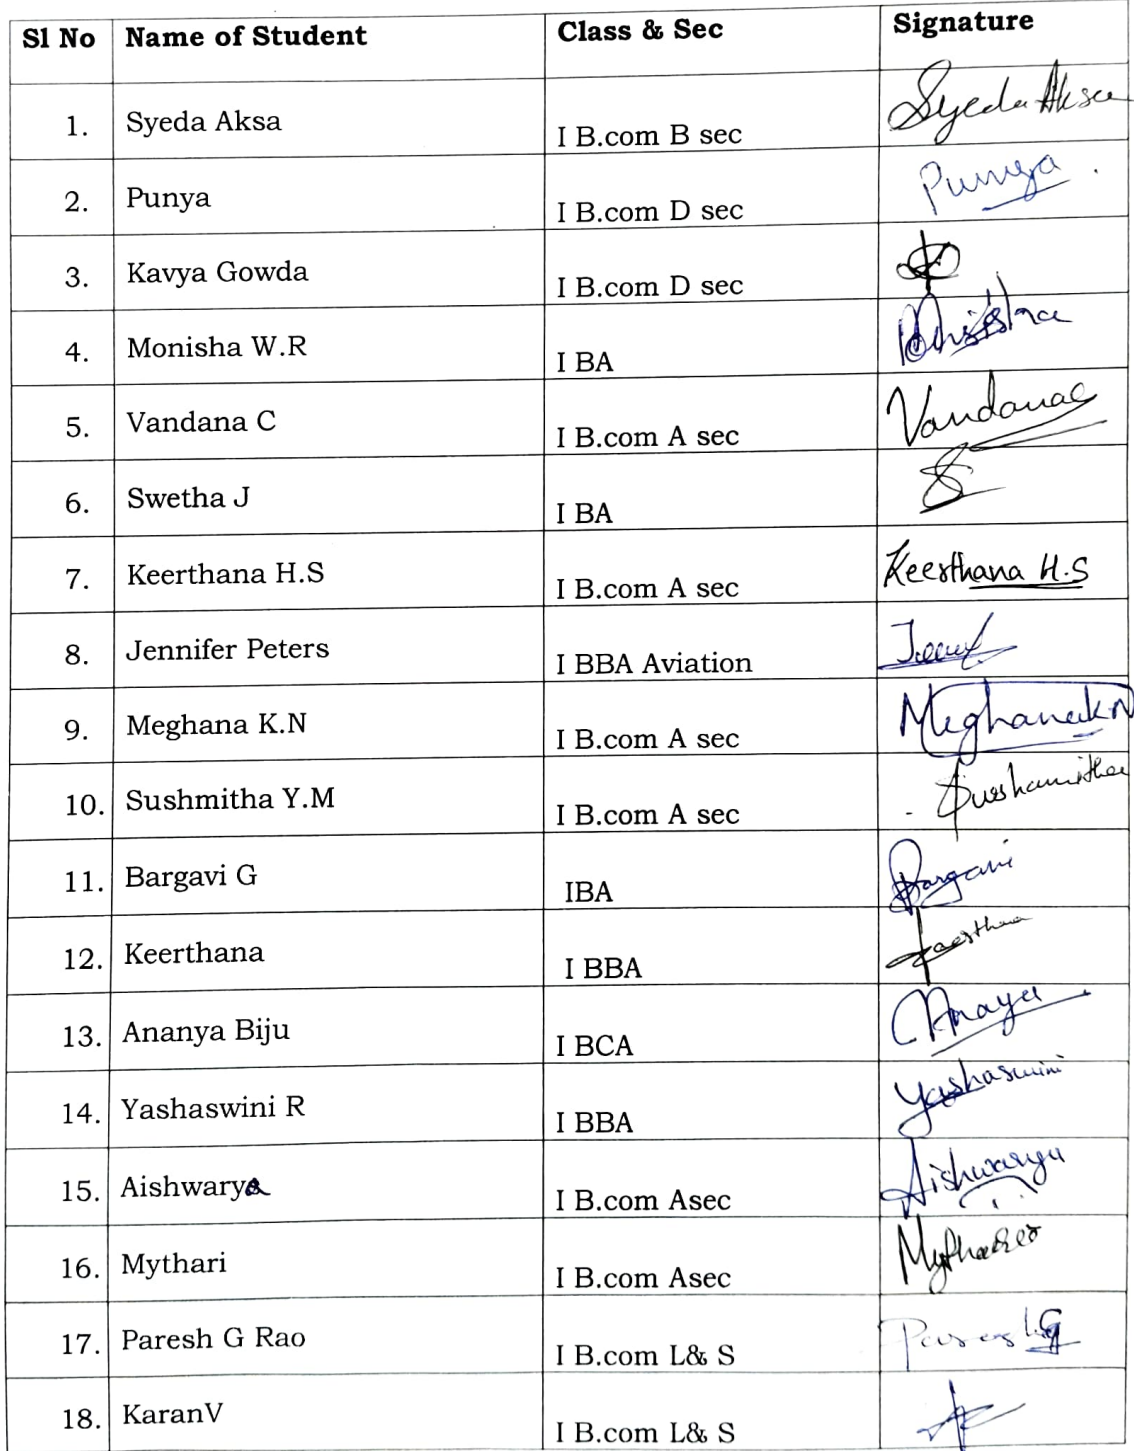 Sl No Name of Student Class & Sec Signature
1. Syeda Aksa I B.com B sec Syeda Aksa
2. Punya I B.com D sec Punya
3. Kavya Gowda I B.com D sec
4. Monisha W.R I BA
5. Vandana C I B.com A sec Vandana C
6. Swetha J I BA
7. Keerthana H.S I B.com A sec Keerthana H.S
8. Jennifer Peters I BBA Aviation
9. Meghana K.N I B.com A sec Meghana K N
10. Sushmitha Y.M I B.com A sec
11. Bargavi G IBA Bargavi
12. Keerthana I BBA
13. Ananya Biju I BCA
14. Yashaswini R I BBA Yashaswini
15. Aishwarya I B.com Asec Aishwarya
16. Mythari I B.com Asec
17. Paresh G Rao I B.com L& S
18. KaranV I B.com L& S